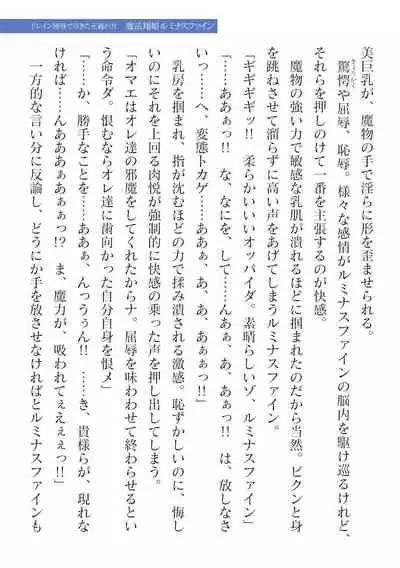 ドレイン凌辱で尽きた正義の力　魔法翔姫ルミナスファイン
美巨乳が、魔物の手で淫らに形を歪ませられる。
驚愕や屈辱、恥辱。様々な感情がルミナスファインの脳内を駆け巡るけれど、
きょうがく
それらを押しのけて一番を主張するのが快感。
魔物の強い力で敏感な乳肌が潰れるほどに掴まれたのだから当然。ビクンと身
を跳ねさせて溜らずに高い声をあげてしまうルミナスファイン。
「ギギギギッ!!　柔らかいいいオッパイダ。素晴らしいゾ、ルミナスファイン」
「……ああぁっ!!　な、なにを、して……んあぁ、あ、ああぁっ!!　は、放しなさ
いっ……へ、変態トカゲ……ああぁ、あ、あ、あぁぁっ!!」
乳房を掴まれ、指が沈むほどの力で揉み潰される激感。恥ずかしいのに、悔し
いのにそれを上回る肉悦が強制的に快感の乗った声を押し出してしまう。
「オマエはオレ達の邪魔をしてくれたからナ。屈辱を味わわせて終わらせるとい
う命令ダ。恨むならオレ達に歯向かった自分自身を恨メ」
「……か、勝手なことを……ああぁ、んっうぅん!!　……き、貴様らが、現れな
ければ……んあああぁあぁぁっ!?　ま、魔力が、吸われてぇえぇぇっ!!」
一方的な言い分に反論し、どうにか手を放させなければとルミナスファインも